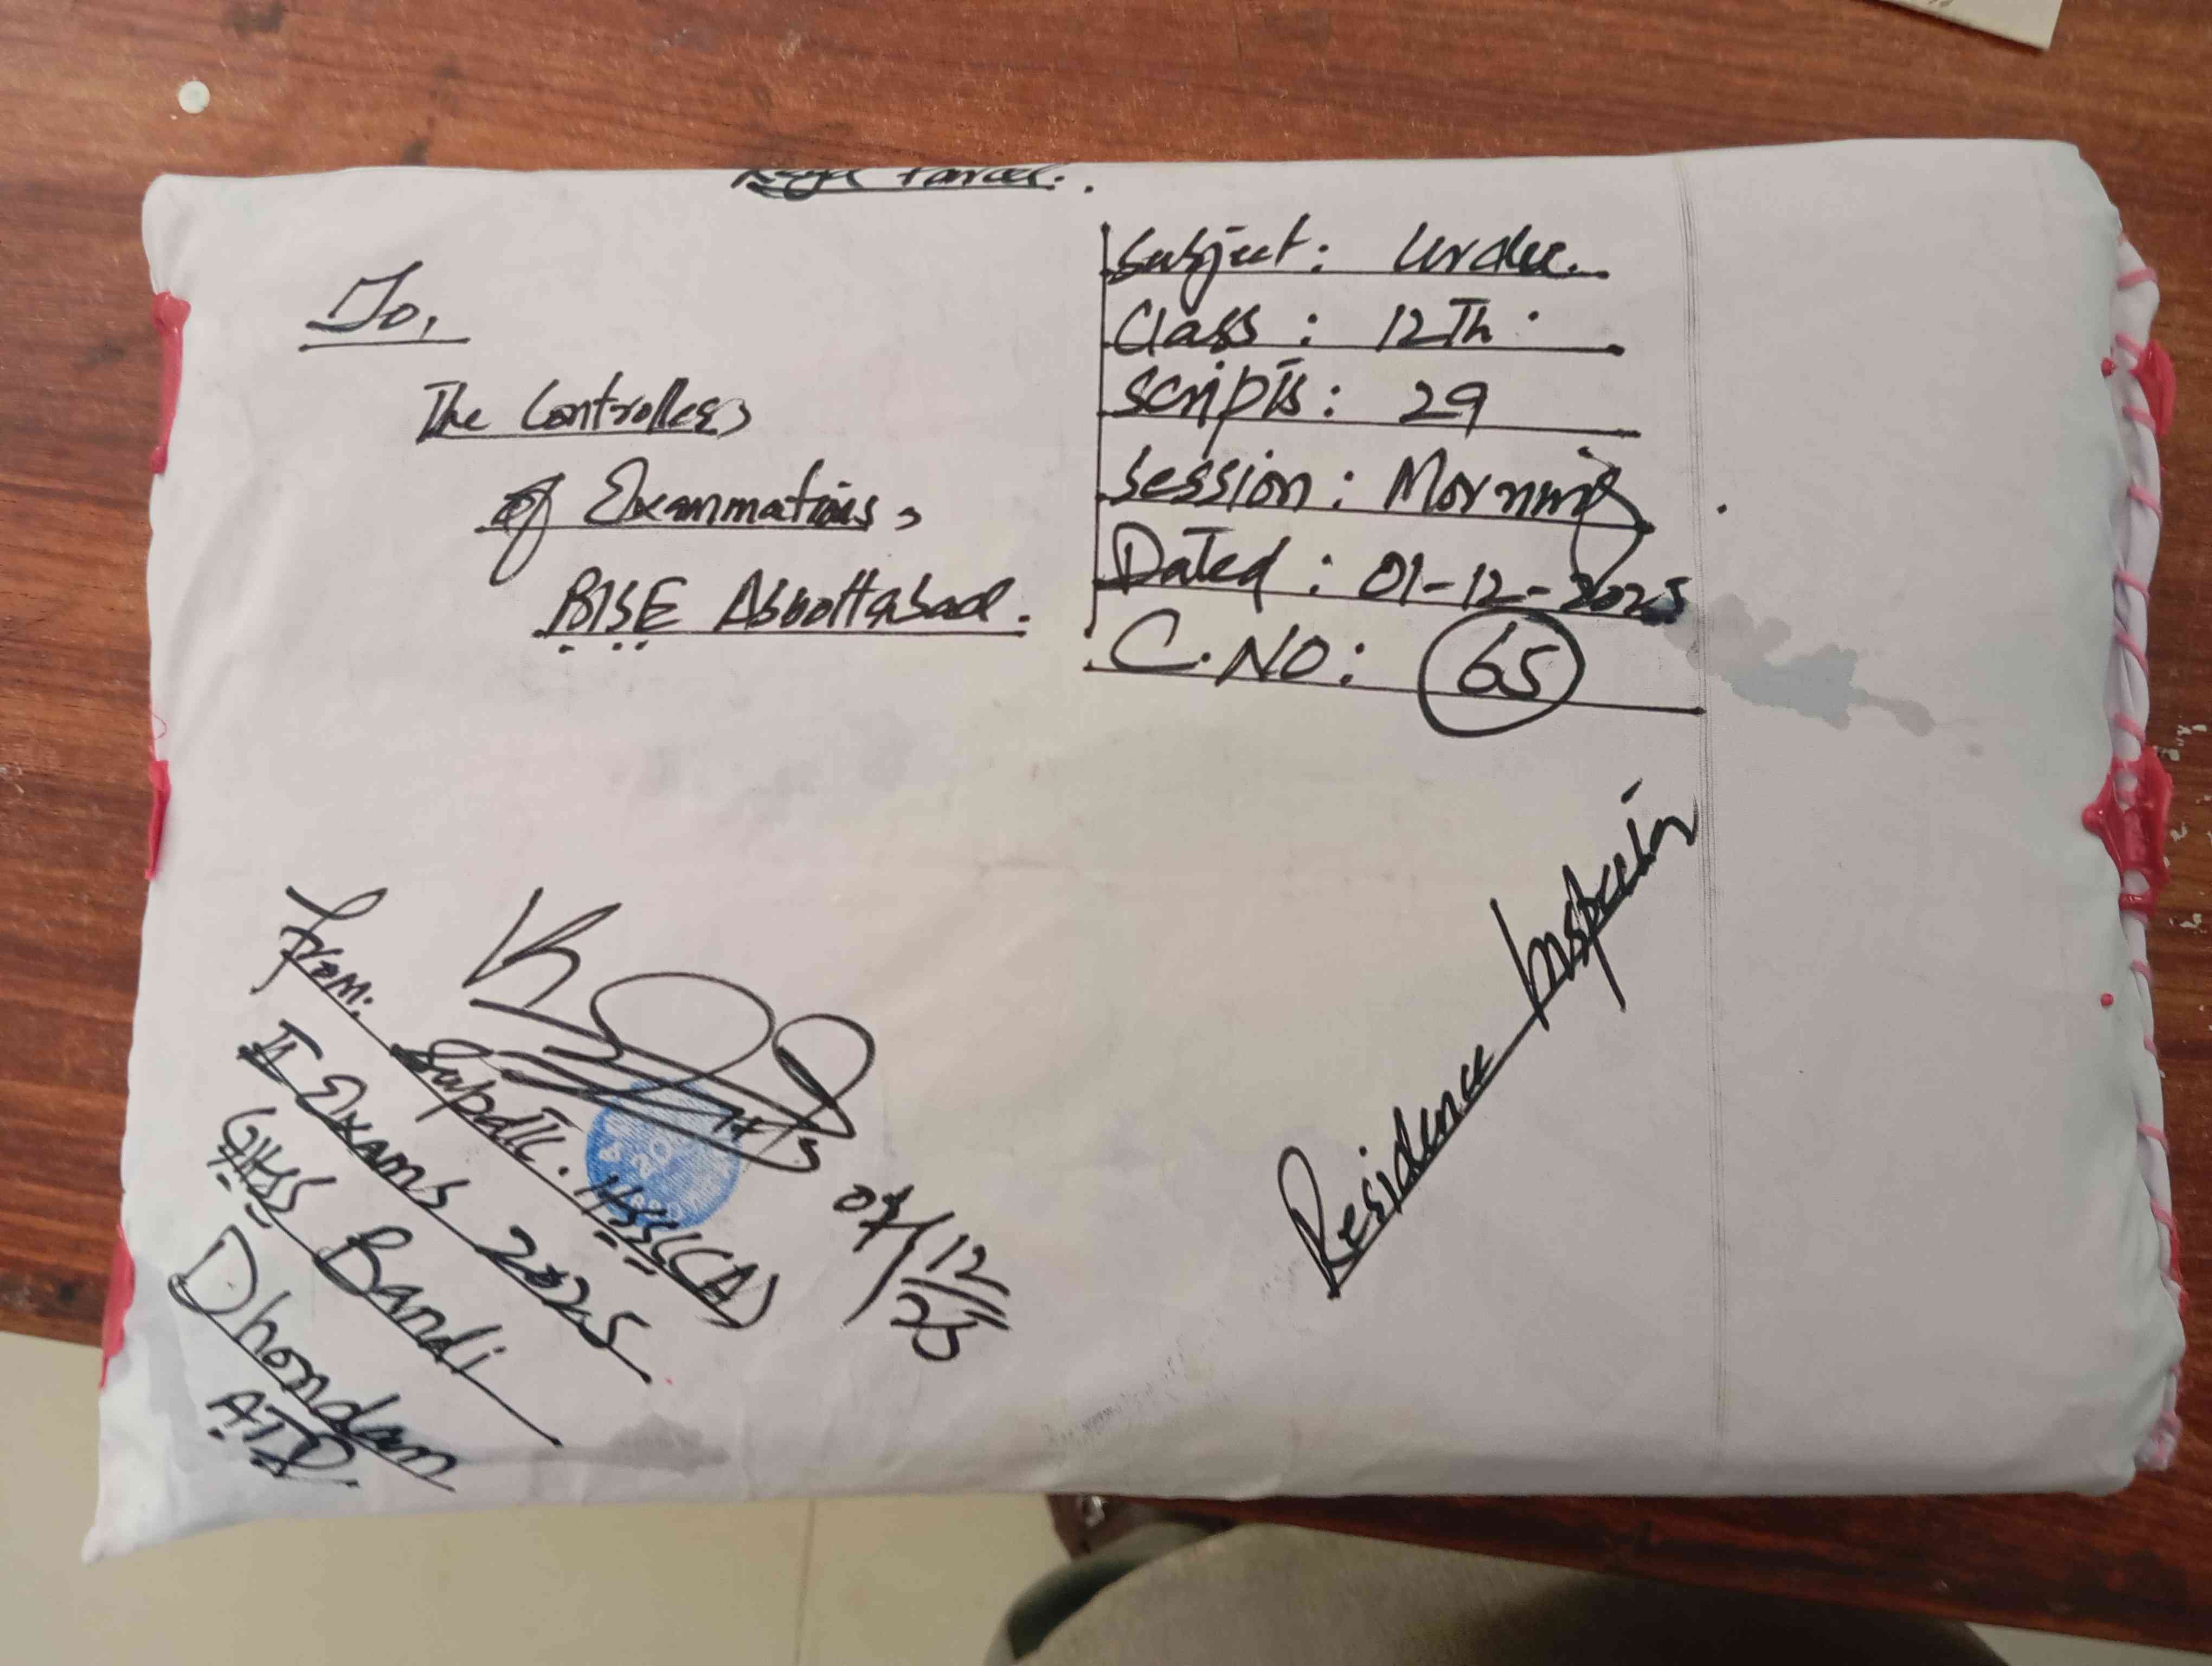 Regd Parcel.
To,
The Controller
of Examinations,
BISE Abbottabad.
Subject: Urdu.
Class: 12Th
Scripts: 29
Session: Morning
Dated: 01-12-2025
C.NO: 65
Residence Inspector
From:
Supdtt. HSSC(A)
II Exams 2025
GHSS Bandi
Dhondan
ATD.
01/12/25